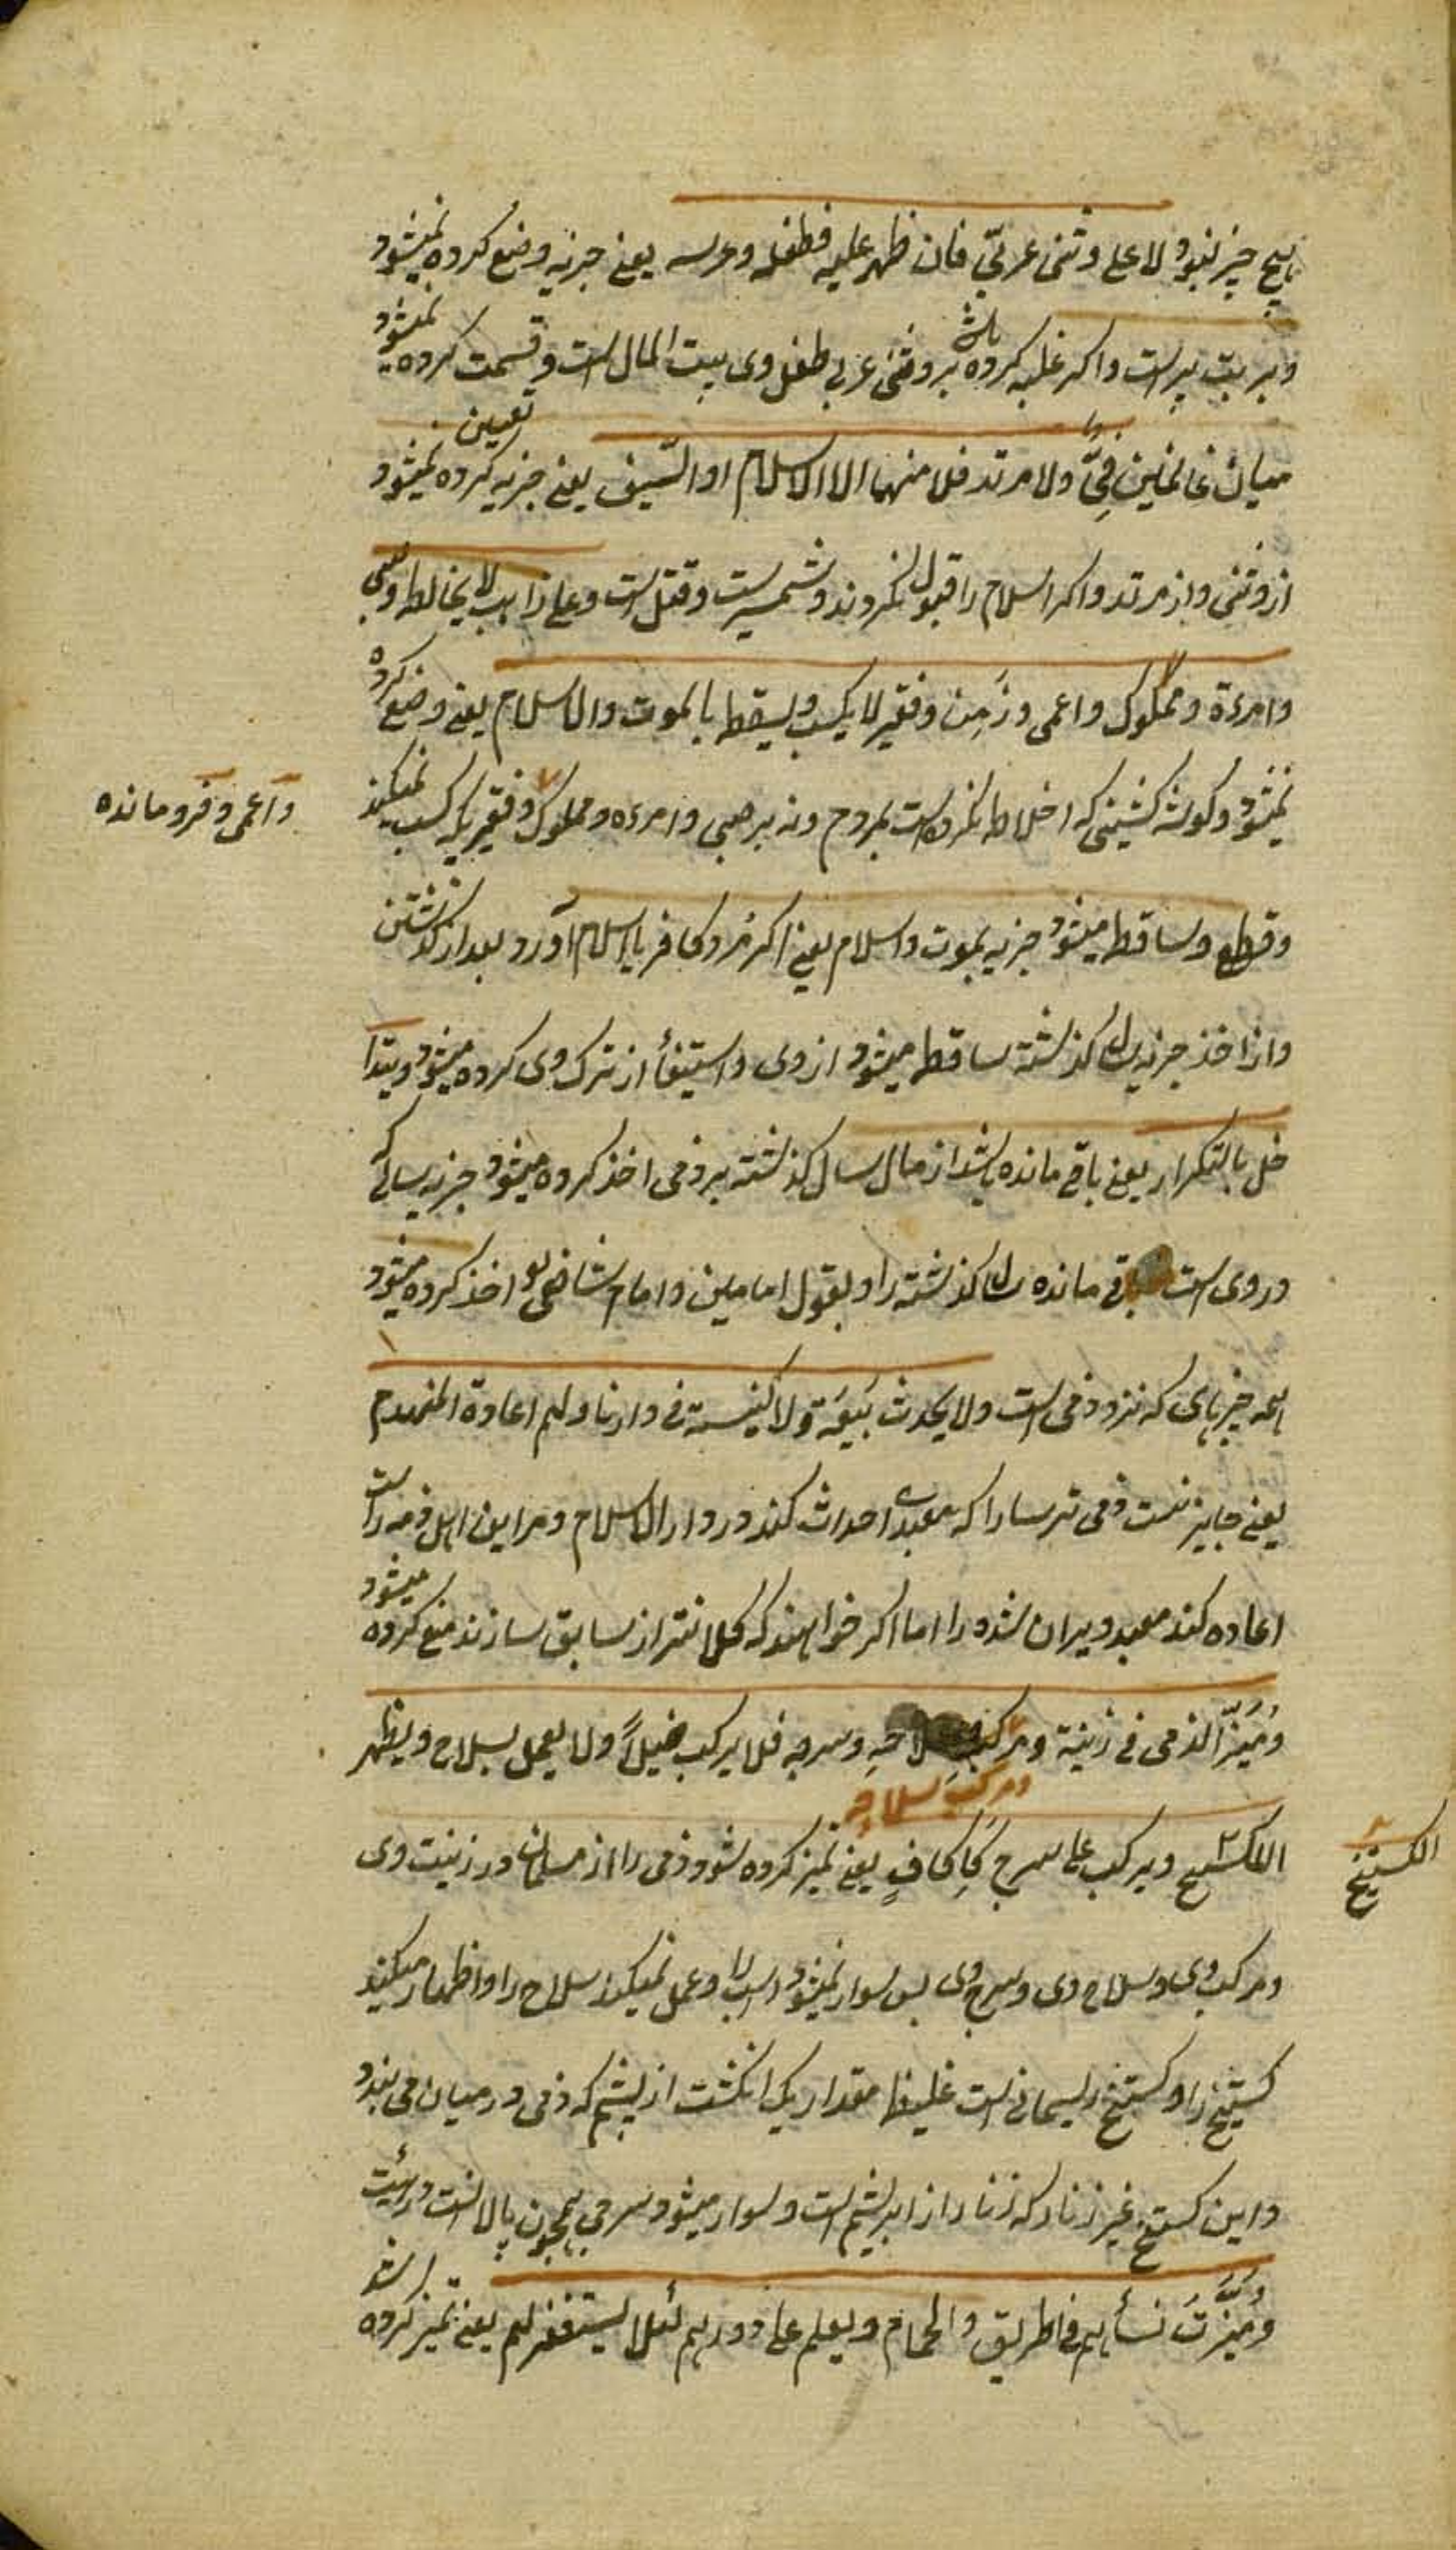 هیچ چیز نبود لا علی وثنی عربی فان ظهر علیه فطفله وعرسه یعنی جزیه وضع کرده نمیشود
وبر بت پرست واکر غلبه کرده باشد بر وثنی عربی طفل وی بیت المال است وقسمت کرده نمیشود
میان غانمین فیٌ ولا مرتد فلا منهما الا الاسلام او السّیف یعنی جزیه تعیین کرده نمیشود
از وثنی واز مرتد واکر اسلام را قبول نکردند وشمشیرست وقتل است وعلی راهب لا یخالط وصبی
وامرءة ومملوک واعمی وزَمِن وفقیر لا یکسب ویسقط بالموت والاسلام یعنی وضع کرده
نمیشود وکوشه نشینی که اختلاط نکرده است بمردم ونه بر صبی وامرءه ومملوک وفقیریکه کسب نمیکند
واعمی وفرومانده
وقطع وساقط میشود جزیه بموت واسلام یعنی اکر مرد کافر یا اسلام آورد بعد از کذشتن
واز اخذ جزیه سال کذشته ساقط میشود از وی واستیفأ از ترک وی کرده میشود ویتدا
خل بالتکرار یعنی باقی مانده باشد از مال سال کذشته بر ذمی اخذ کرده میشود جزیه سالی که
در وی است باقی مانده سال کذشته را وبقول امامین وامام شافعی اخذ کرده میشود
همه چیزهای که نزد ذمی است ولا یحدث بَیعَة ولا کنیسة فی دارنا ولهم اعادة المنهدم
یعنی جایز نیست ذمی ترسا را که معبدی احداث کند در دار الاسلام ومر این اهل ذمه راست
اعاده کند معبد ویران شده را اما اکر خواهند که کلانتر از سابق سازند منع کرده میشود
ومُیّزَ الذمی فی زینة ومرکبه وسلاحهِ وسرجه فلا یرکب خیلاً ولا یعمل بسلاح ویظهر
ومرکبه سلاحه
الکستیج ویرکب علی سرج کَاِکافٍ یعنی تمیز کرده شود ذمی را از مسلمانان در زینت وی
الکستیج
ومرکب وی وسلاح وی وسرج وی پس سوار نمیشود اسب را وعمل نمیکند سلاح را واظهار میکند
کستیج را وکستیج ریسمانی است غلیظ مقدار یک انکشت از پشم که ذمی در میان می بندد
واین کستیج غیر زنار که زنار از ابریشم است وسوار میشود سرجی همچون پالانست در هیئت
ومُیّزَت نسأهم فی الطریق والحمام ویعلم علی دورهم لئلا یستغفر لهم یعنی تمیز کرده شود